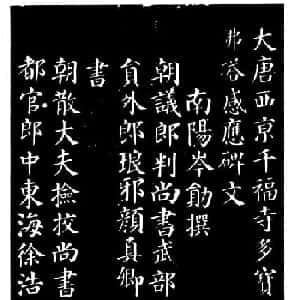 大唐西京千福寺多寶
佛塔感應碑文
南陽岑勛撰
朝議郎判尚書武部
員外郎琅邪顏真卿
書
朝散大夫撿挍尚書
都官郎中東海徐浩